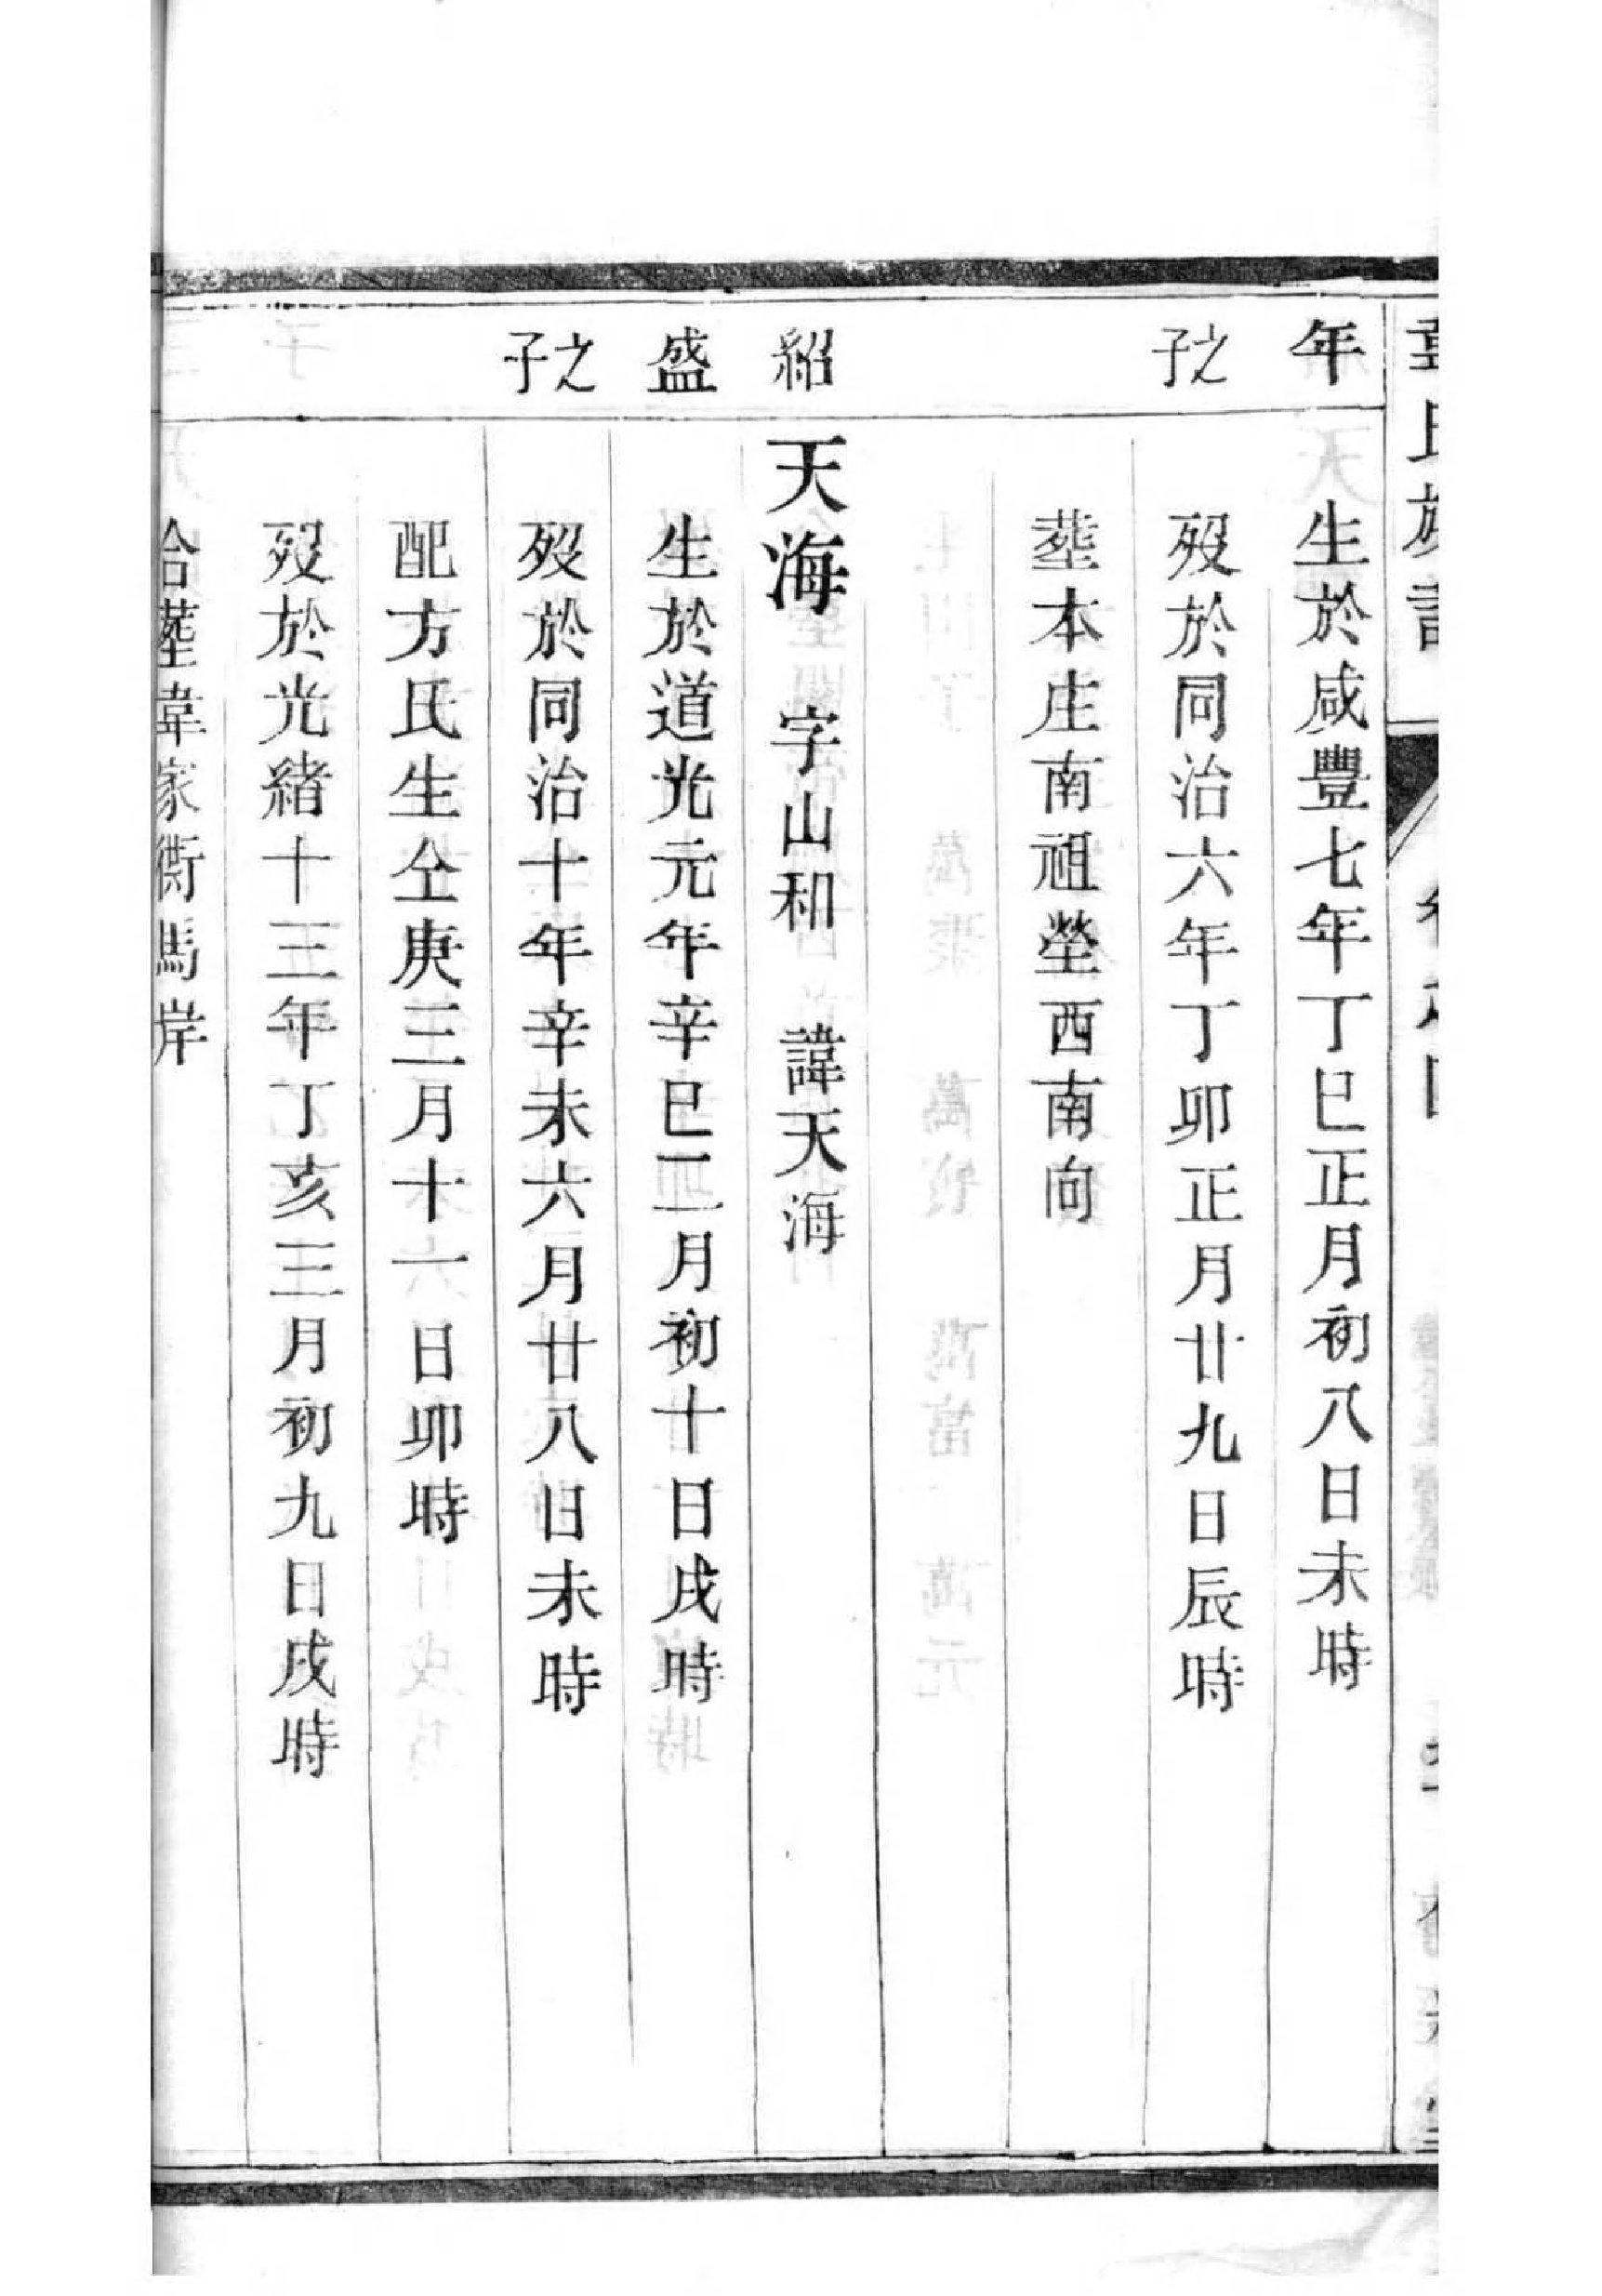 年
生於咸豐七年丁巳正月初八日未時
之子
歿於同治六年丁卯正月廿九日辰時
塟本庄南祖塋西南向
紹
天海 字山和 諱天海
盛
生於道光元年辛巳二月初十日戌時
之子
歿於同治十年辛未六月廿八日未時
配方氏生仝庚三月十一日卯時
歿於光緒十三年丁亥三月初九日戌時
合塟韋家衖馬岸